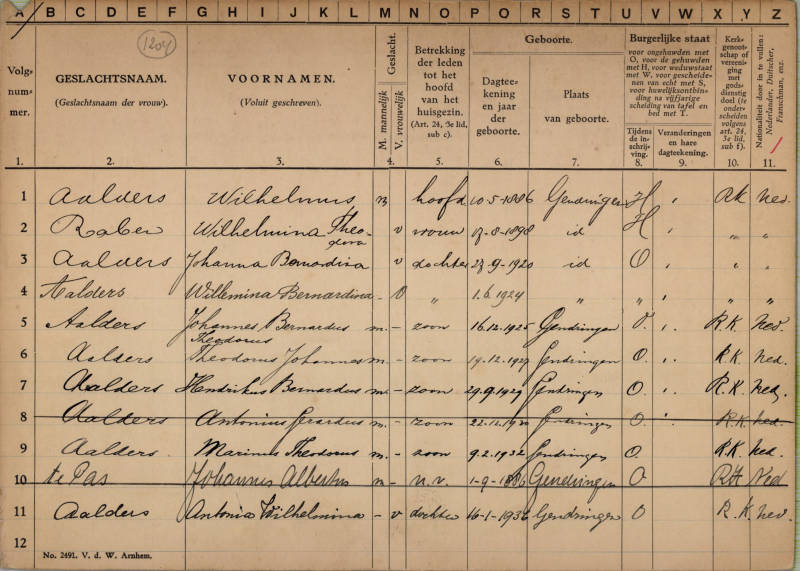 A B C D E F G H I J K L M N O P Q R S T U V W X Y Z
1204
Volg-
num-
mer.
GESLACHTSNAAM.
(Geslachtsnaam der vrouw).
VOORNAMEN.
(Voluit geschreven).
Geslacht.
M. mannelijk
V. vrouwelijk
Betrekking
der leden
tot het
hoofd
van het
huisgezin.
(Art. 24, 3e lid,
sub c).
Geboorte.
Dagtee-
kening
en jaar
der
geboorte.
Plaats
van geboorte.
Burgerlijke staat
voor ongehuwden met
O, voor de gehuwden
met H, voor weduwstaat
met W, voor gescheide-
nen van echt met S,
voor huwelijksontbin-
ding na vijfjarige
scheiding van tafel en
bed met T.
Tijdens
de in-
schrij-
ving.
Veranderingen
en hare
dagteekening.
Kerk-
genoot-
schap of
vereeni-
ging
met
gods-
dienstig
doel (te
onder-
scheiden
volgens
art. 24,
3e lid,
sub f).
Nationaliteit door in te vullen:
Nederlander, Duitscher,
Franschman, enz.
1. 2. 3. 4. 5. 6. 7. 8. 9. 10. 11.
1 Aalders Wilhelmus m hoofd 10-5-1886 Gendringen H RK ned.
2 Raben Wilhelmina Theo-
dora v vrouw 8-1898 id H " "
3 Aalders Johanna Bernardina v dochter 27-9-1920 id O " "
4 Aalders Willemina Bernardina - V " 1.6.1924 " " " "
5 Aalders Johannes Bernardus m. - zoon 16.12.1925 Gendringen O. R.K. ned.
Theodorus
6 Aalders Theodorus Johannes m. - zoon 19.12.1927 Gendringen O. R.K. ned.
7 Aalders Hendrikus Bernardus m. - zoon 29.9.1929 Gendringen O. R.K. ned.
8 Aalders Antonius Gerardus m. - zoon 22.12.1930 Gendringen O. R.K. ned.
9 Aalders Marinus Theodorus m. - zoon 9.2.1932 Gendringen O. R.K. ned.
10 te Pas Johannes Albertus m - n.v. 1-9-1886 Gendringen O RK Ned
11 Aalders Antonia Wilhelmina - v dochter 16-1-1936 Gendringen O R.K. ned.
12
No. 2491. V. d. W. Arnhem.